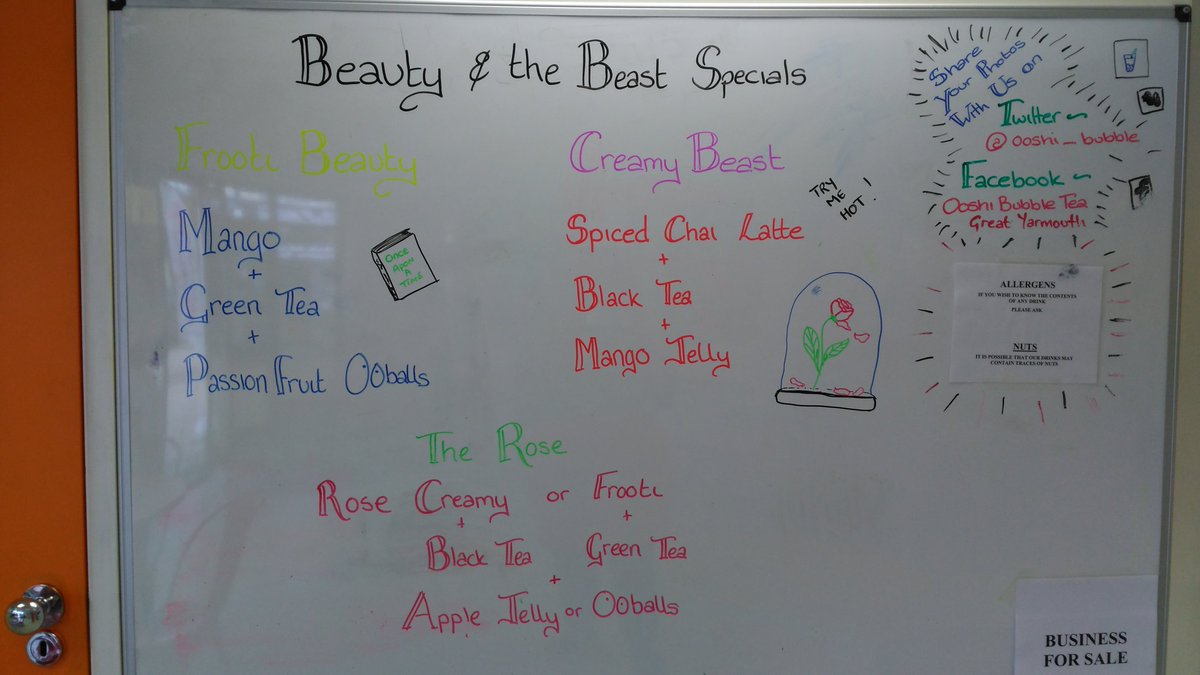 Beauty & the Beast Specials
Frooti Beauty
Mango
+
Green Tea
+
Passion Fruit OOballs
ONCE
APON
A
TIME
Creamy Beast
TRY
ME
HOT!
Spiced Chai Latte
+
Black Tea
+
Mango Jelly
The Rose
Rose Creamy or Frooti
+ +
Black Tea Green Tea
+
Apple Jelly or OOballs
Share
Your Photos
With Us on
Twitter ~
@ooshi_bubble
Facebook ~
Ooshi Bubble Tea
Great Yarmouth
ALLERGENS
IF YOU WISH TO KNOW THE CONTENTS
OF ANY DRINK
PLEASE ASK
NUTS
IT IS POSSIBLE THAT OUR DRINKS MAY
CONTAIN TRACES OF NUTS
BUSINESS
FOR SALE